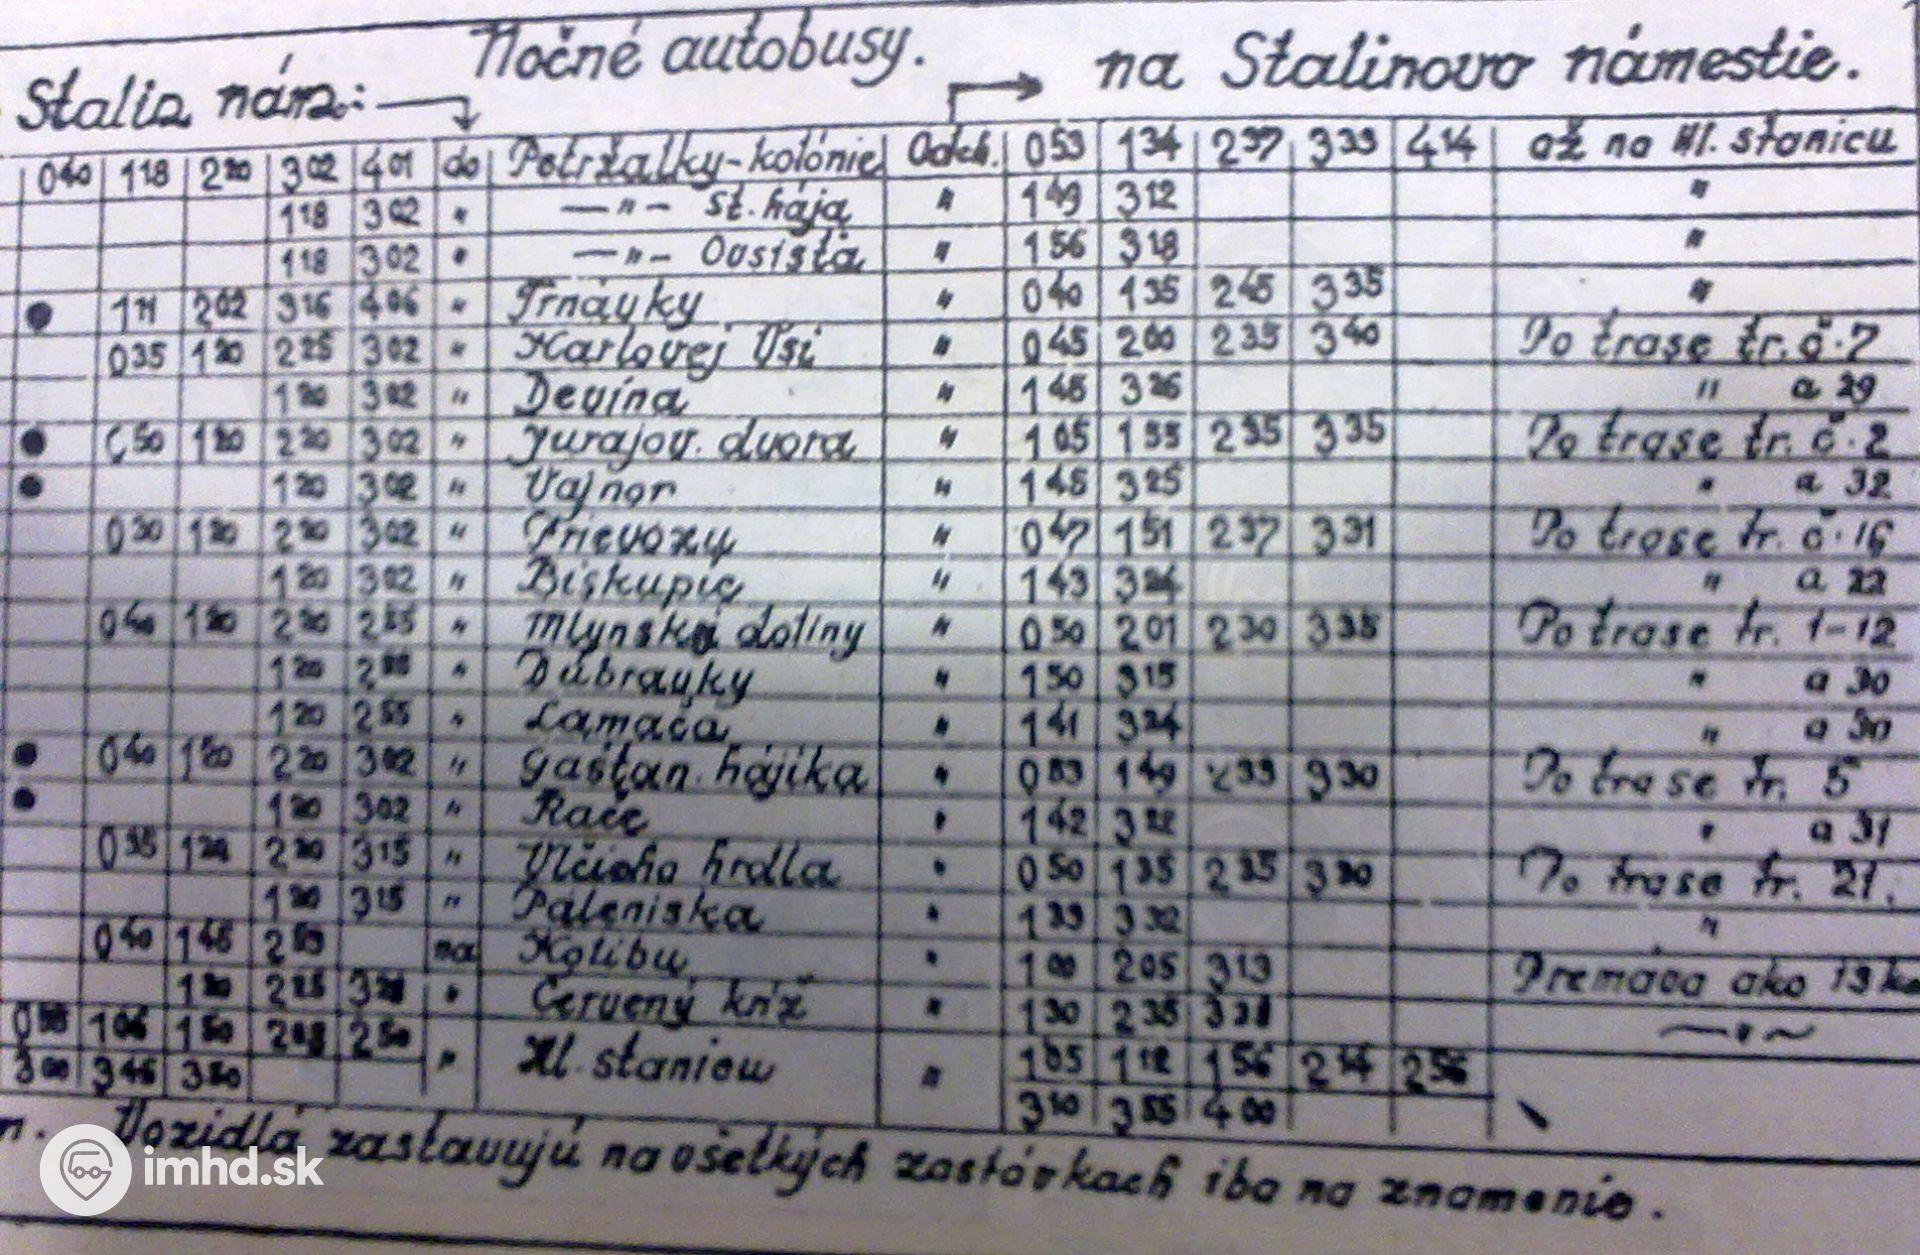 Nočné autobusy.
Stalin nám: na Stalinovo námestie.
040 118 220 302 401 do Petržalky-kolónie Odch. 053 134 237 333 414 až na Hl. stanicu
118 302 " —"— St. hája " 149 312 "
118 302 " —"— Ovsišťa " 156 318 "
● 111 202 316 406 " Trnávky " 040 135 245 335 "
035 120 225 302 " Karlovej Vsi " 045 200 235 340 Po trase tr. č. 7
120 302 " Devína " 145 326 " a 29
● 050 120 220 302 " Jurajov. dvora " 105 155 235 335 Po trase tr. č. 2
● 120 302 " Vajnor " 145 325 " a 32
030 120 220 302 " Prievozu " 047 151 237 331 Po trase tr. č. 16
120 302 " Biskupíc " 143 324 " a 22
040 120 220 255 " Mlynskej doliny " 050 201 230 335 Po trase tr. 1-12
120 255 " Dúbravky " 150 315 " a 30
120 255 " Lamača " 141 324 " a 30
● 040 120 220 302 " Gaštan. hájika " 053 149 233 330 Po trase tr. 5
● 120 302 " Rače " 142 322 " a 31
035 120 220 315 " Vlčieho hrdla " 050 135 235 330 Po trase tr. 21.
120 315 " Páleniska " 133 332 "
040 145 253 na Kolibu " 100 205 313 Premáva ako 13
120 225 321 " Červený kríž " 130 235 331 —"—
106 150 250 " Hl. stanicu " 105 112 156 214 256
300 345 350 310 355 400
Vozidlá zastavujú na všetkých zastávkach iba na znamenie.
imhd.sk